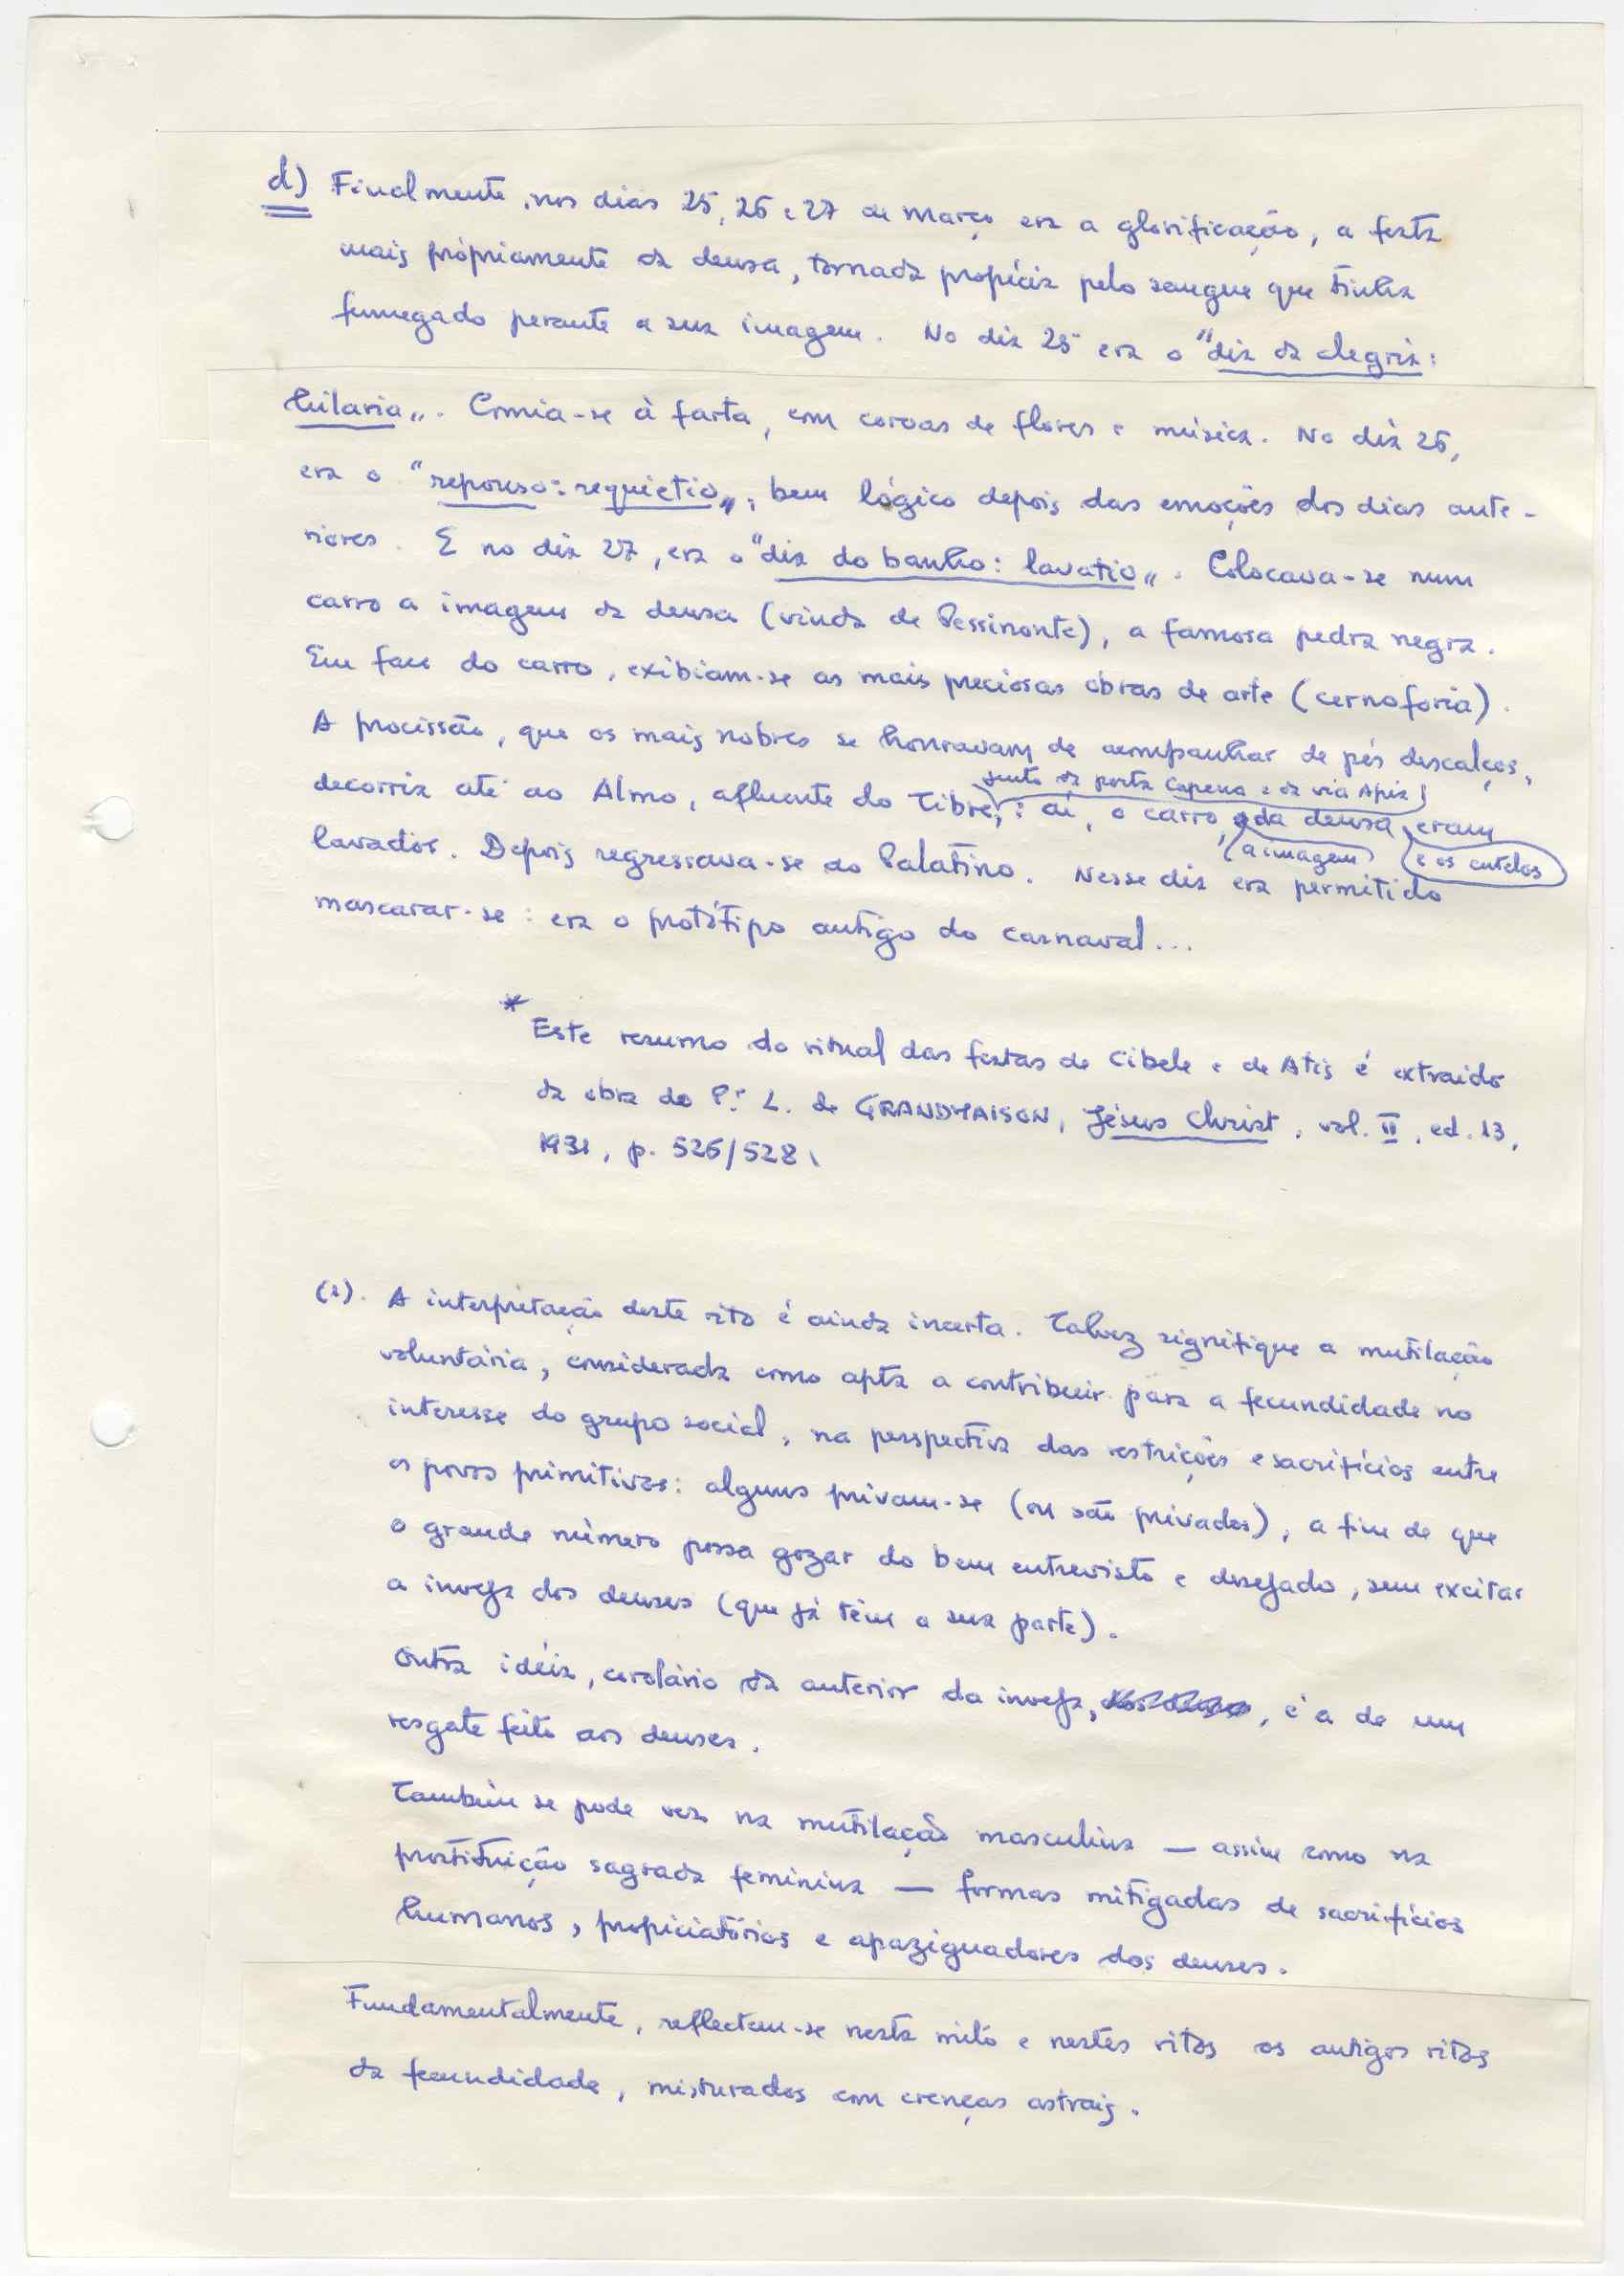 d) Finalmente, nos dias 25, 26 e 27 de março era a glorificação, a festa
mais pròpriamente da deusa, tornada propícia pelo sangue que tinha
fumegado perante a sua imagem. No dia 25 era o "dia da alegria:
hilaria". Comia-se à farta, com coroas de flores e música. No dia 26,
era o "repouso: requietio", bem lógico depois das emoções dos dias ante-
riores. E no dia 27, era o "dia do banho: lavatio". Colocava-se num
carro a imagem da deusa (vinda de Pessinonte), a famosa pedra negra.
Em face do carro, exibiam-se as mais preciosas obras de arte (cernoforia).
A procissão, que os mais nobres se honravam de acompanhar de pés descalços,
junto da porta Capena e da via Apia)
decorria até ao Almo, afluente do Tibre, : aí, o carro, da deusa eram
(a imagem) e os cutelos
lavados. Depois regressava-se ao Palatino. Nesse dia era permitido
mascarar-se: era o protótipo antigo do carnaval...
* Este resumo do ritual das festas de Cibele e de Atis é extraído
da obra do P.e L. de GRANDMAISON, Jésus Christ, vol. II, ed. 13,
1931, p. 526/528.
(2). A interpretação deste rito é ainda incerta. Talvez signifique a mutilação
voluntária, considerada como apta a contribuir para a fecundidade no
interesse do grupo social, na perspectiva das restrições e sacrifícios entre
os povos primitivos: alguns privam-se (ou são privados), a fim de que
o grande número possa gozar do bem entrevisto e desejado, sem excitar
a inveja dos deuses (que já têm a sua parte).
Outra idéia, corolário da anterior da inveja, é a de um
resgate feito aos deuses.
Também se pode ver na mutilação masculina — assim como na
prostituição sagrada feminina — formas mitigadas de sacrifícios
humanos, propiciatórios e apaziguadores dos deuses.
Fundamentalmente, reflectem-se neste mito e nestes ritos os antigos ritos
da fecundidade, misturados com crenças astrais.